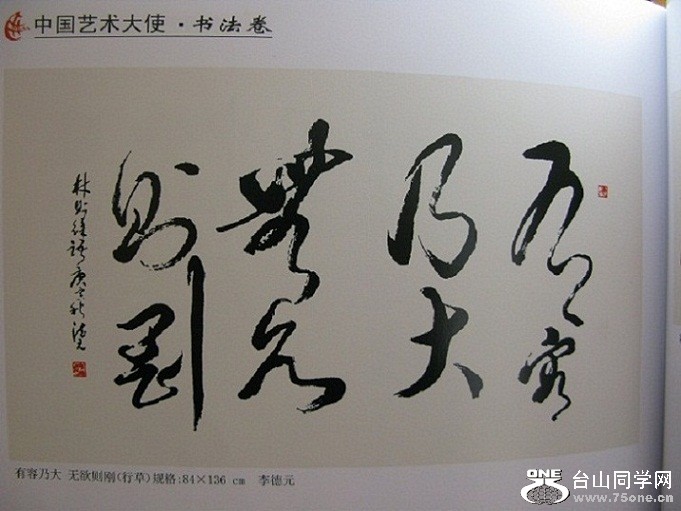 中国艺术大使·书法卷
有容
乃大
無欲
則剛
林則徐語庚寅秋德元
有容乃大 无欲则刚(行草)规格:84×136 cm 李德元
ONE 台山同学网
www.75one.cn